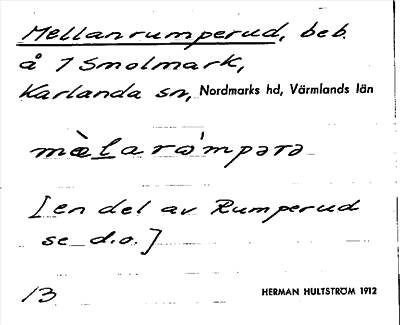 Mellanrumperud, beb.
å 1 Smolmark,
Karlanda sn, Nordmarks hd, Värmlands län
mæ̀Larω'mpərə
[en del av Rumperud
se d.o.]
13 HERMAN HULTSTRÖM 1912